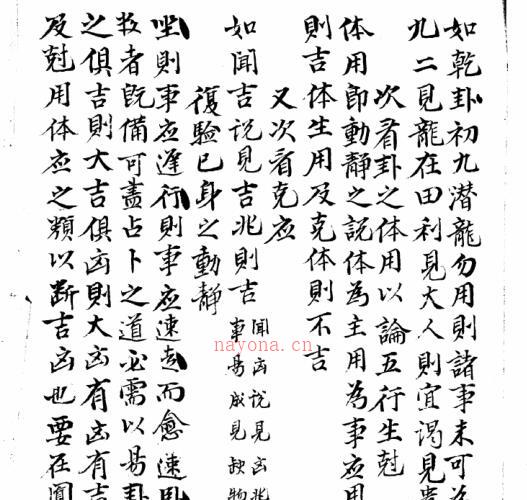 如乾卦初九潜龍勿用則諸事未可
九二見龍在田利見大人則宜謁見
次看卦之体用以論五行生尅
体用即動靜之説体為主用為事应用
則吉体生用及克体則不吉
又次看克应
如聞吉説見吉兆則吉
聞凶説見凶兆
事易成見缺物
復驗已身之動靜
坐則事应遲行則事应速走而愈速卧
者既備可盡占卜之道必需以易卦
之俱吉則大吉俱凶則大凶有凶有吉
及尅用体应之類以断吉凶也要在
nayona.cn